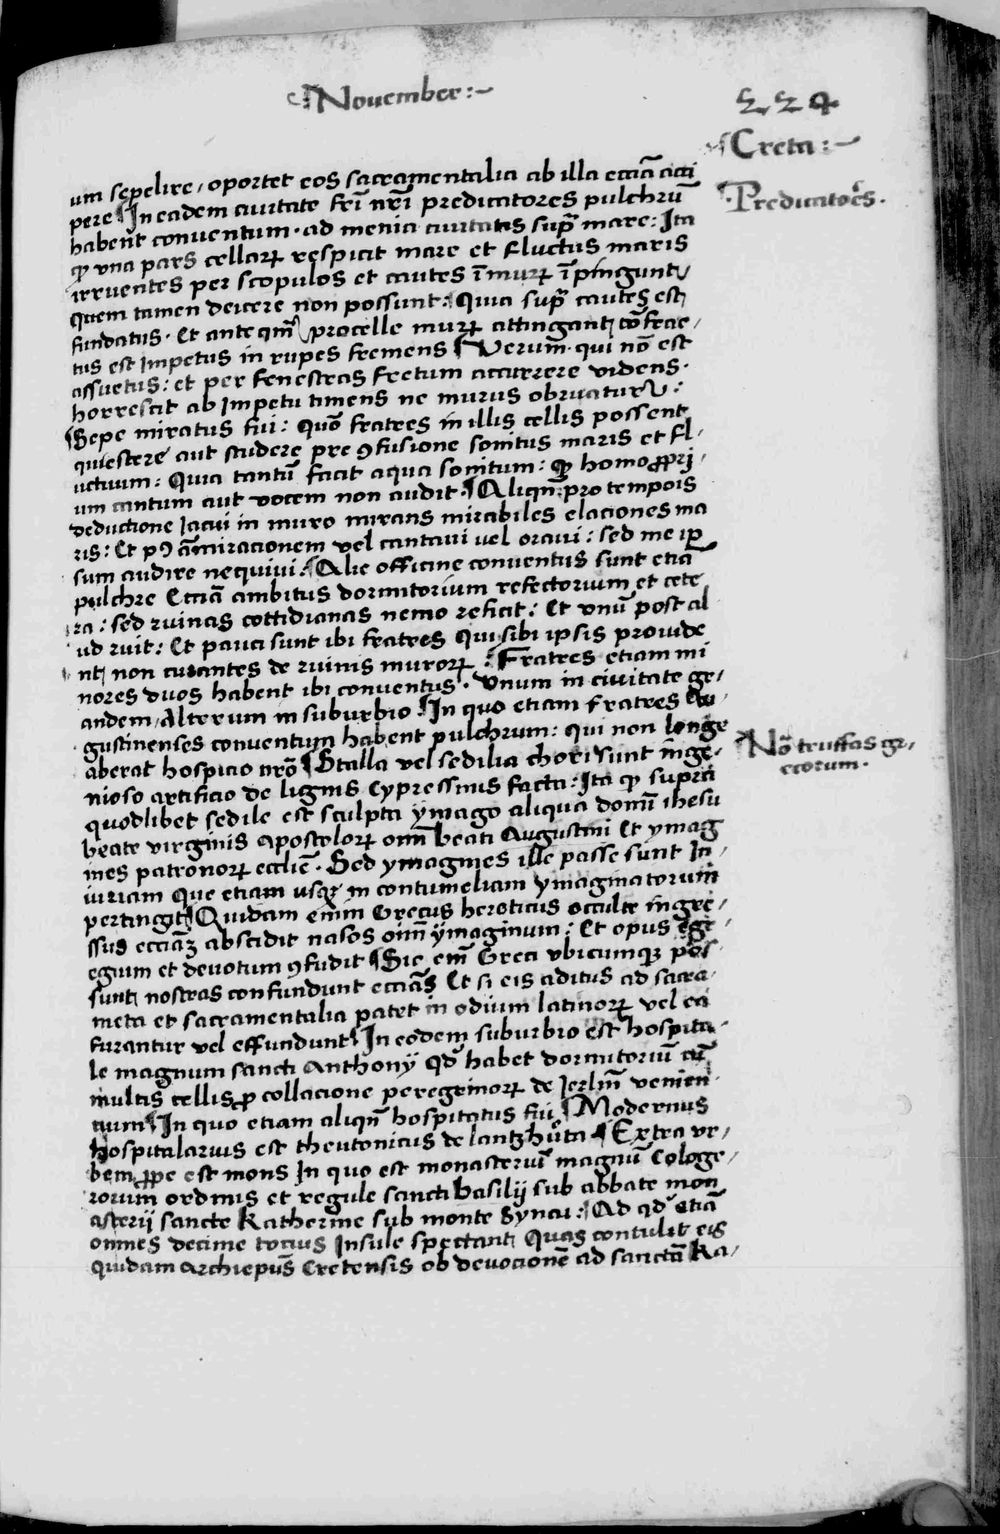 ¶November:~
224
¶Creta:~
um sepelire / oportet eos sacramentalia ab illa ecciā acci
pere ¶In eadem ciuitate frī nrī predicatores pulchrū
Predicatores.
habent conuentum · ad menia ciuitatis supra mare: Ita
ꝙ vna pars cellarꝝ respicit mare et fluctus maris
irruentes per scopulos et cautes ī murꝝ īpingunt
quem tamen deicere non possunt: Quia supra cautes est
fundatus · Et anteqm̄ procelle murꝝ attingant cōfrac/
tus est impetus in rupes fremens ¶Verum · qui nō est
assuetus: et per fenestras fretum accurrere videns ·
horrescit ab impetu timens ne murus obruatur:
¶Sepe miratus fui: quō fratres in illis cellis possent
quiescere aut studere pre ꝯfusione sonitus maris et fl/
uctuum: Quia tantū facit aqua sonitum: ꝙ homo ꝓpri/
um cantum aut vocem non audit · ¶Aliqn̄ pro temporis
deductione Iacui in muro mirans mirabiles elaciones ma
ris: Et pꝯ āmiracionem vel cantaui uel oraui: sed me ip
sum audire nequiui: ¶Alie officine conuentus sunt etiā
pulchre Ecciā ambitus dormitorium refectorium et cete
ra: sed ruinas cottidianas nemo reficit: Et vnū post al
ud ruit: Et pauci sunt ibi fratres qui sibi ipsis prouide
nt non curantes de ruinis murorꝝ: Fratres etiam mi
nores duos habent ibi conuentus · Vnum in ciuitate gr/
andem / Alterum in suburbio ¶In quo etiam fratres Au/
gustinenses conuentum habent pulchrum: qui non longe
aberat hospicio nrō ¶Stalla vel sedilia chori sunt inge/
Nō truffas gr/
ecorum ·
nioso artificio de lignis Cypressinis facta: Ita ꝙ supra
quodlibet sedile est sculpta ymago aliqua domī ihesu
beate virginis apostolorꝝ om̄ beati Augustini Et ymag
ines patronorꝝ ecclīe · Sed ymagines ille passe sunt In/
iuriam Que etiam usqꝫ in contumeliam ymaginatorum
pertingit ¶Quidam enim Grecus hereticus occulte ingre/
ssus ecciāꝫ abscidit nasos oīm ymaginum: Et opus egr
egium et deuotum ꝯfudit ¶Sic em̄ Greci vbicumqꝫ pos/
sunt nostras confundunt ecciās Et si eis aditus ad sacra/
meta et sacramentalia patet in odium latinorꝝ vel ea
furantur vel effundunt ¶In eodem suburbio est hospita/
le magnum sancti Anthonÿ qd̄ habet dormitoriū cū
multis cellis ꝓ collacione peregrinorꝝ de Jerlm̄ venien
tium ¶In quo etiam aliqn̄ hospitatus fui ¶Modernus
hospitalarius est theutonicus de lantzhůta ¶Extra vr/
bem ꝓpe est mons In quo est monasteriū magnū Cologe/
rorum ordinis et regule sancti Basilij sub abbate mon
asterij sancte Katherine sub monte Synai: ¶Ad qd̄ etiā
omnes decime tocius Insule spectant Quas contulit eis
quidam archiepus̄ Cretensis ob deuocionē ad sanctā Ka/